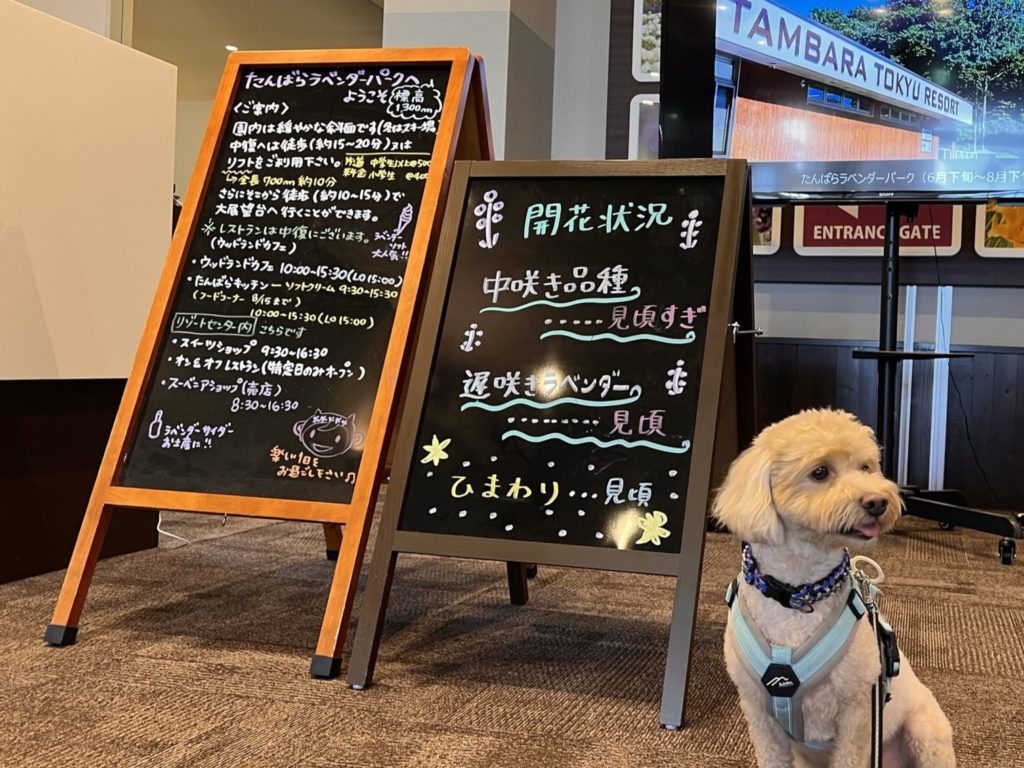 たんばらラベンダーパークへ
ようこそ
標高
1,300m
〈ご案内〉
園内は緩やかな斜面です(冬はスキー場)
中腹へは徒歩(約15~20分)又は
リフトをご利用下さい。
片道 中学生以上@500
料金 小学生 @400
↳全長700m 約10分
さらにそこから徒歩(約10~15分)で
大展望台へ行くことができます。
※レストランは中腹にございます。
(ウッドランドカフェ)
ラベンダー
ソフト
大人気!!
・ウッドランドカフェ 10:00~15:30(LO 15:00)
・たんばらキッチン ー ソフトクリーム 9:30~15:30
(フードコーナー 8/15まで)
10:00~15:30(LO 15:00)
リゾートセンター内 こちらです
・スイーツショップ 9:30~16:30
・オン&オフレストラン(特定日のみオープン)
・スーベニアショップ(売店)
8:30~16:30
ラベンダーサイダー
お土産に!!
楽しい1日を
お過ごし下さい♪
開花状況
中咲き品種
・・・・・見頃すぎ
遅咲きラベンダー
・・・・・・・・見頃
ひまわり・・・見頃
TAMBARA TOKYU RESORT
たんばらラベンダーパーク(6月下旬~8月下
SONY
ENTRANCE GATE